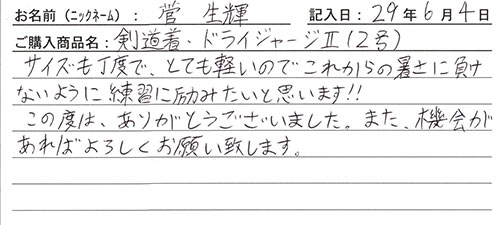 お名前（ニックネーム）： 菅 生輝 記入日：29年6月4日
ご購入商品名：剣道着・ドライジャージⅡ（2号）
サイズも丁度で、とても軽いのでこれからの暑さに負け
ないように練習に励みたいと思います!!
この度は、ありがとうございました。また、機会が
あればよろしくお願い致します。